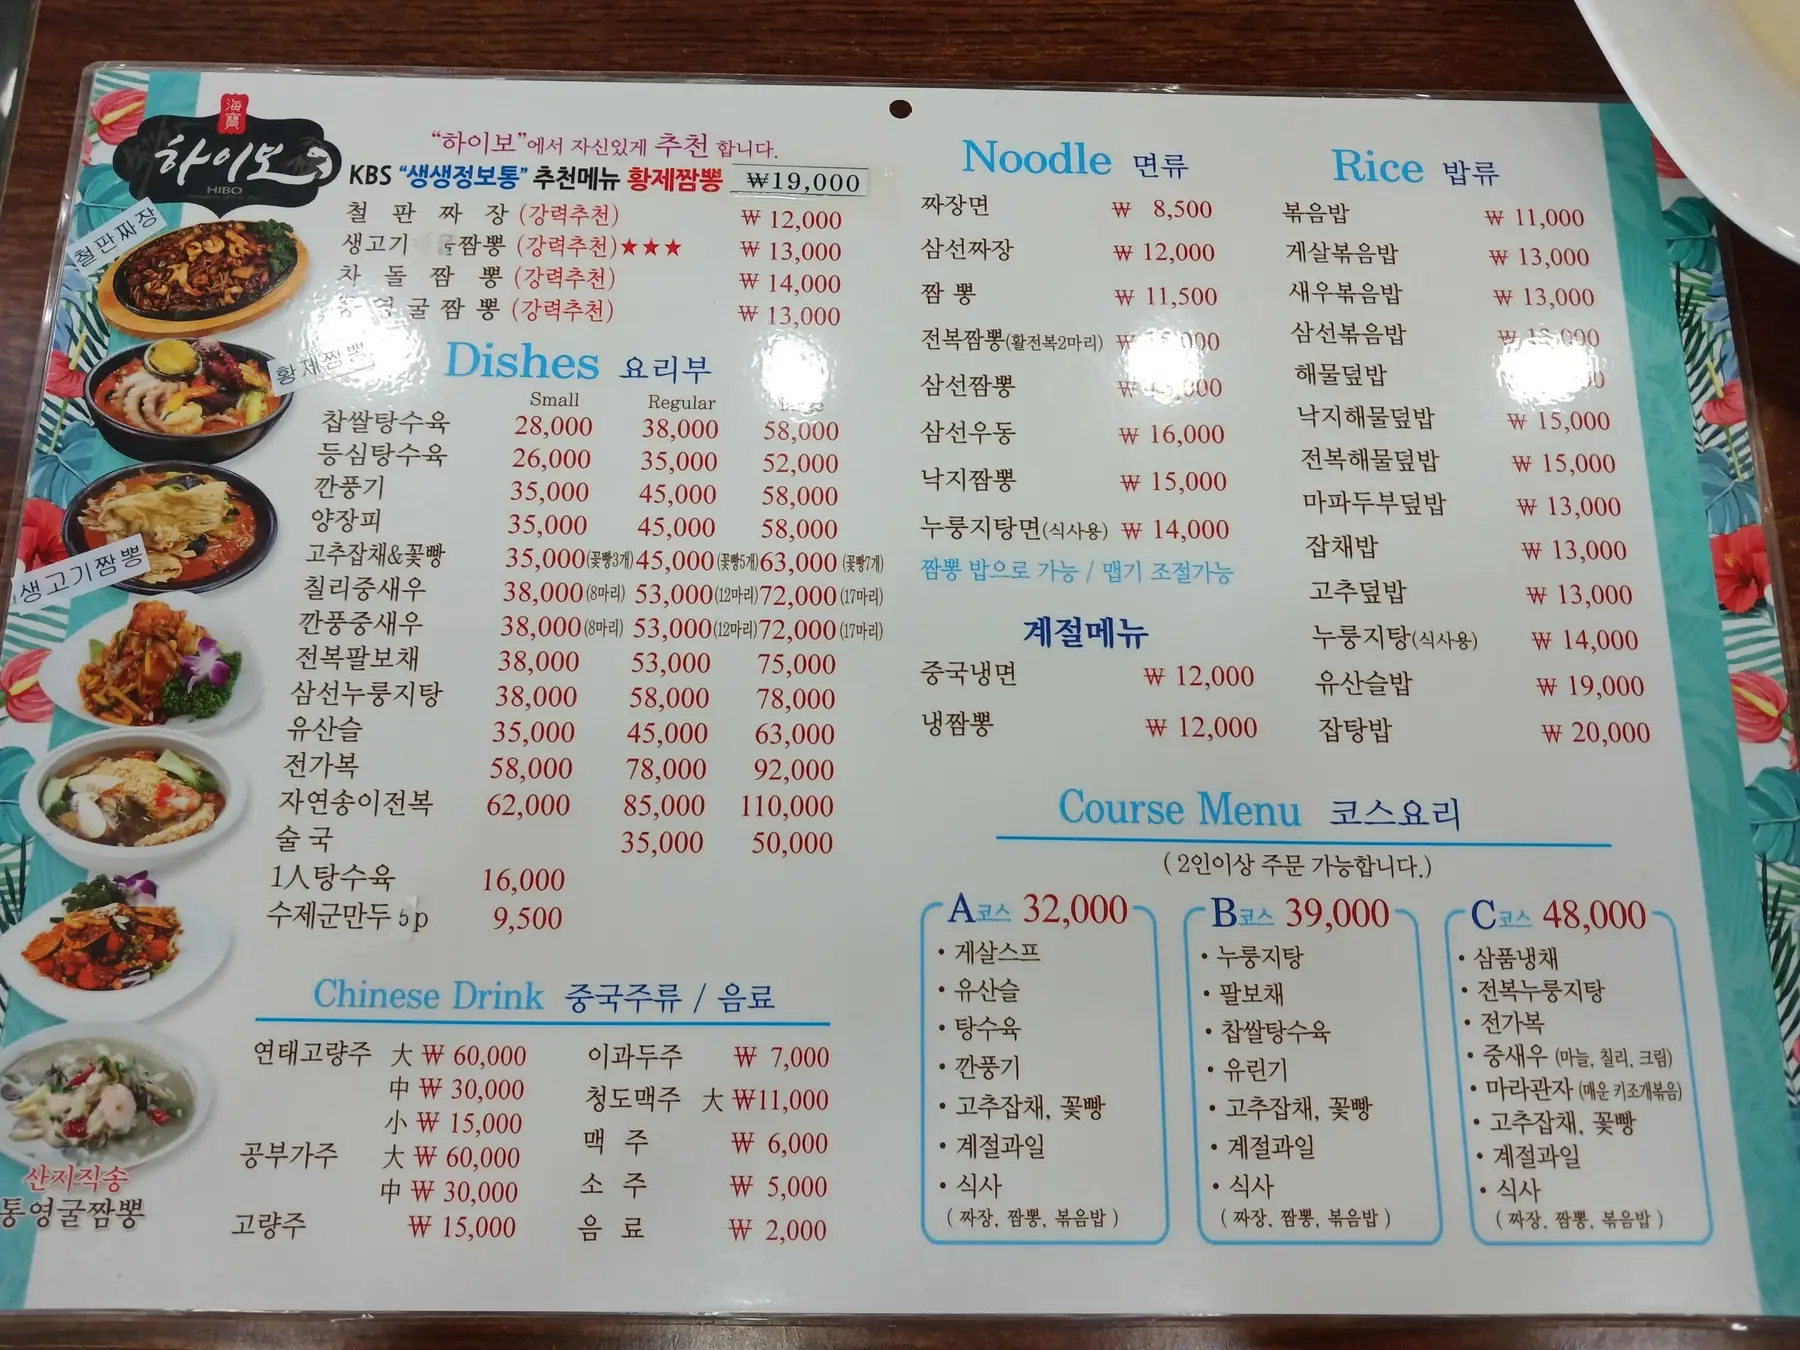 海寶
하이보
HIBO
"하이보"에서 자신있게 추천 합니다.
KBS "생생정보통" 추천메뉴 황제짬뽕 ₩19,000
철 판 짜 장 (강력추천) ₩ 12,000
생고기 짬뽕 (강력추천)★★★ ₩ 13,000
차 돌 짬 뽕 (강력추천) ₩ 14,000
통 영 굴 짬 뽕 (강력추천) ₩ 13,000
철판짜장
황제짬뽕
생고기짬뽕
산지직송
통영굴짬뽕
Dishes 요리부
Small Regular
찹쌀탕수육 28,000 38,000 58,000
등심탕수육 26,000 35,000 52,000
깐풍기 35,000 45,000 58,000
양장피 35,000 45,000 58,000
고추잡채&꽃빵 35,000(꽃빵3개) 45,000(꽃빵5개) 63,000(꽃빵7개)
칠리중새우 38,000(8마리) 53,000(12마리) 72,000(17마리)
깐풍중새우 38,000(8마리) 53,000(12마리) 72,000(17마리)
전복팔보채 38,000 53,000 75,000
삼선누룽지탕 38,000 58,000 78,000
유산슬 35,000 45,000 63,000
전가복 58,000 78,000 92,000
자연송이전복 62,000 85,000 110,000
술 국 35,000 50,000
1人탕수육 16,000
수제군만두 5p 9,500
Chinese Drink 중국주류 / 음료
연태고량주 大 ₩ 60,000
中 ₩ 30,000
小 ₩ 15,000
공부가주 大 ₩ 60,000
中 ₩ 30,000
고량주 ₩ 15,000
이과두주 ₩ 7,000
청도맥주 大 ₩11,000
맥 주 ₩ 6,000
소 주 ₩ 5,000
음 료 ₩ 2,000
Noodle 면류
짜장면 ₩ 8,500
삼선짜장 ₩ 12,000
짬 뽕 ₩ 11,500
전복짬뽕(활전복2마리) ₩
삼선짬뽕 ₩
삼선우동 ₩ 16,000
낙지짬뽕 ₩ 15,000
누룽지탕면(식사용) ₩ 14,000
짬뽕 밥으로 가능 / 맵기 조절가능
계절메뉴
중국냉면 ₩ 12,000
냉짬뽕 ₩ 12,000
Rice 밥류
볶음밥 ₩ 11,000
게살볶음밥 ₩ 13,000
새우볶음밥 ₩ 13,000
삼선볶음밥 ₩
해물덮밥
낙지해물덮밥 ₩ 15,000
전복해물덮밥 ₩ 15,000
마파두부덮밥 ₩ 13,000
잡채밥 ₩ 13,000
고추덮밥 ₩ 13,000
누룽지탕(식사용) ₩ 14,000
유산슬밥 ₩ 19,000
잡탕밥 ₩ 20,000
Course Menu 코스요리
( 2인이상 주문 가능합니다.)
A코스 32,000
• 게살스프
• 유산슬
• 탕수육
• 깐풍기
• 고추잡채, 꽃빵
• 계절과일
• 식사
( 짜장, 짬뽕, 볶음밥 )
B코스 39,000
• 누룽지탕
• 팔보채
• 찹쌀탕수육
• 유린기
• 고추잡채, 꽃빵
• 계절과일
• 식사
( 짜장, 짬뽕, 볶음밥 )
C코스 48,000
• 삼품냉채
• 전복누룽지탕
• 전가복
• 중새우 (마늘, 칠리, 크림)
• 마라관자 (매운 키조개볶음)
• 고추잡채, 꽃빵
• 계절과일
• 식사
( 짜장, 짬뽕, 볶음밥 )